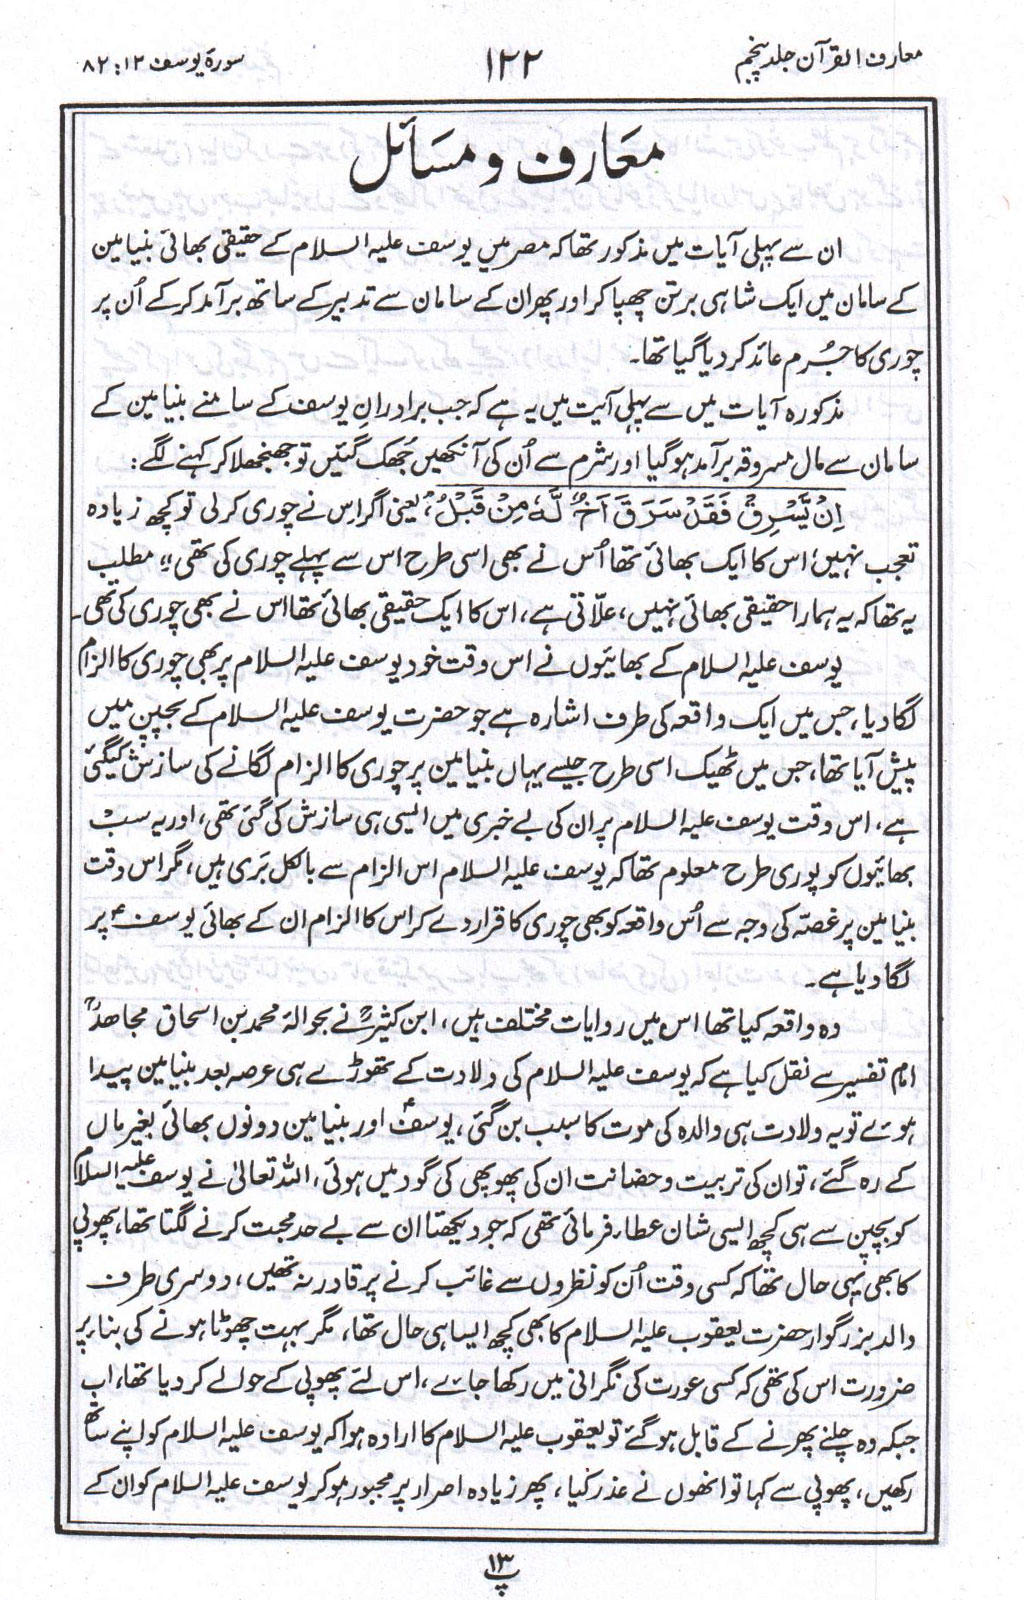 معارف القرآن جلد پنجم
۱۲۲
سورۃ یوسف ۱۲: ۸۲
معارف و مسائل
ان سے پہلی آیات میں مذکور تھا کہ مصر میں یوسف علیہ السلام کے حقیقی بھائی بنیامین
کے سامان میں ایک شاہی برتن چھپا کر اور پھر ان کے سامان سے تدبیر کے ساتھ برآمد کر کے اُن پر
چوری کا جُرم عائد کر دیا گیا تھا۔
مذکورہ آیات میں سے پہلی آیت میں یہ ہے کہ جب برادرانِ یوسف کے سامنے بنیامین کے
سامان سے مال مسروقہ برآمد ہوگیا اور شرم سے اُن کی آنکھیں جُھک گئیں تو جھنجھلا کر کہنے لگے :
اِنْ يَّسْرِقْ فَقَدْ سَرَقَ اَخٌ لَّهٗ مِنْ قَبْلُ، یعنی اگر اِس نے چوری کرلی تو کچھ زیادہ
تعجب نہیں، اس کا ایک بھائی تھا اُس نے بھی اسی طرح اس سے پہلے چوری کی تھی؛؛ مطلب
یہ تھا کہ یہ ہمارا حقیقی بھائی نہیں، علّاتی ہے، اس کا ایک حقیقی بھائی تھا اس نے بھی چوری کی تھی۔
یوسف علیہ السلام کے بھائیوں نے اس وقت خود یوسف علیہ السلام پر بھی چوری کا الزام
لگا دیا، جس میں ایک واقعہ کی طرف اشارہ ہے جو حضرت یوسف علیہ السلام کے بچپن میں
پیش آیا تھا، جس میں ٹھیک اسی طرح جیسے یہاں بنیامین پر چوری کا الزام لگانے کی سازش کیگئی
ہے، اس وقت یوسف علیہ السلام پر ان کی بے خبری میں ایسی ہی سازش کی گئی تھی، اور یہ سب
بھائیوں کو پوری طرح معلوم تھا کہ یوسف علیہ السلام اس الزام سے بالکل بَری ہیں، مگر اس وقت
بنیامین پر غصّہ کی وجہ سے اُس واقعہ کو بھی چوری کا قرار دے کر اس کا الزام ان کے بھائی یوسف ؑ پر
لگا دیا ہے۔
وہ واقعہ کیا تھا اس میں روایات مختلف ہیں، ابن کثیرؒ نے بحوالہ محمد بن اسحاق مجاھدؒ
امام تفسیر سے نقل کیا ہے کہ یوسف علیہ السلام کی ولادت کے تھوڑے ہی عرصہ بعد بنیامین پیدا
ہوئے تو یہ ولادت ہی والدہ کی موت کا سبب بن گئی، یوسفؑ اور بنیامین دونوں بھائی بغیر ماں
کے رہ گئے، تو ان کی تربیت و حضانت ان کی پھوپھی کی گود میں ہوئی، اللہ تعالیٰ نے یوسف علیہ السلام
کو بچپن سے ہی کچھ ایسی شان عطاء فرمائی تھی کہ جو دیکھتا ان سے بے حد محبت کرنے لگتا تھا، پھوپی
کا بھی یہی حال تھا کہ کسی وقت اُن کو نظروں سے غائب کرنے پر قادر نہ تھیں، دوسری طرف
والد بزرگوار حضرت یعقوب علیہ السلام کا بھی کچھ ایسا ہی حال تھا، مگر بہت چھوٹا ہونے کی بناء پر
ضرورت اس کی تھی کہ کسی عورت کی نگرانی میں رکھا جائے، اس لئے پھوپی کے حوالے کر دیا تھا، اب
جبکہ وہ چلنے پھرنے کے قابل ہو گئے تو یعقوب علیہ السلام کا ارادہ ہوا کہ یوسف علیہ السلام کو اپنے ساتھ
رکھیں، پھوپی سے کہا تو انھوں نے عذر کیا، پھر زیادہ اصرار پر مجبور ہو کر یوسف علیہ السلام کو ان کے
پ ۱۳